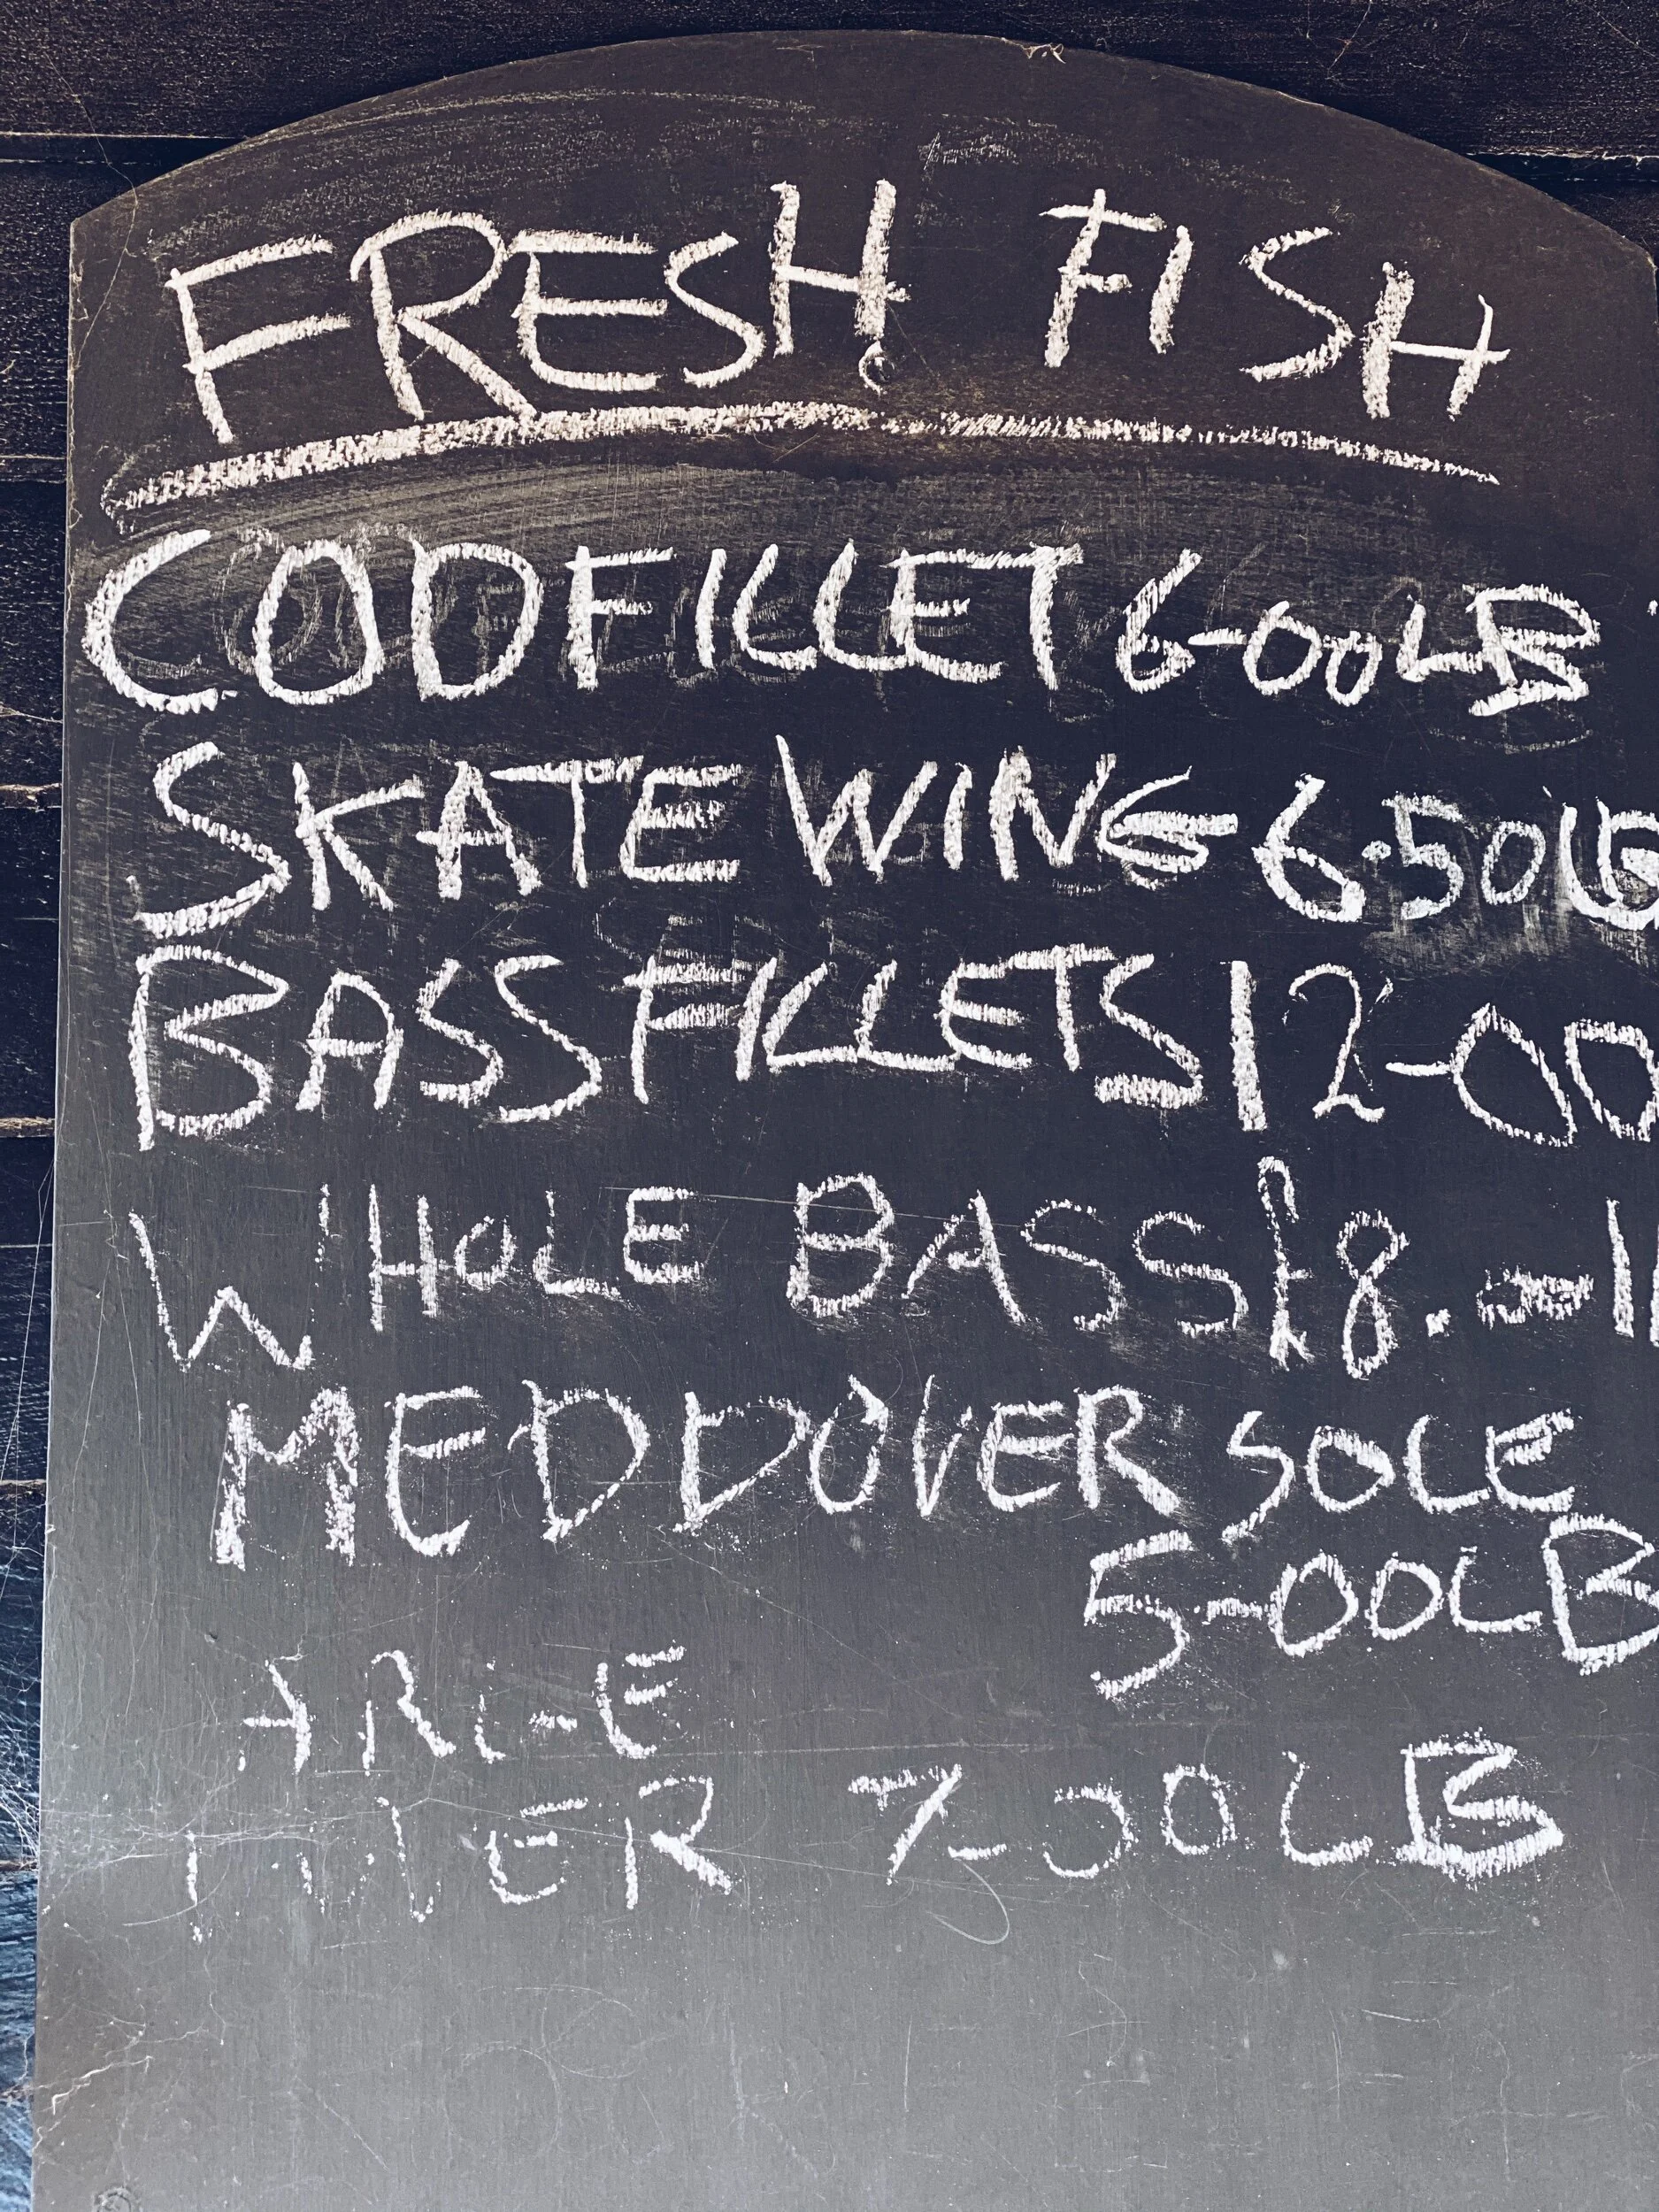 FRESH FISH
COD FILLET 6-00 LB
SKATE WING 6.50 LB
BASS FILLETS 12-00
WHOLE BASS £8.
MED DOVER SOLE
5-00 LB
7-00 LB